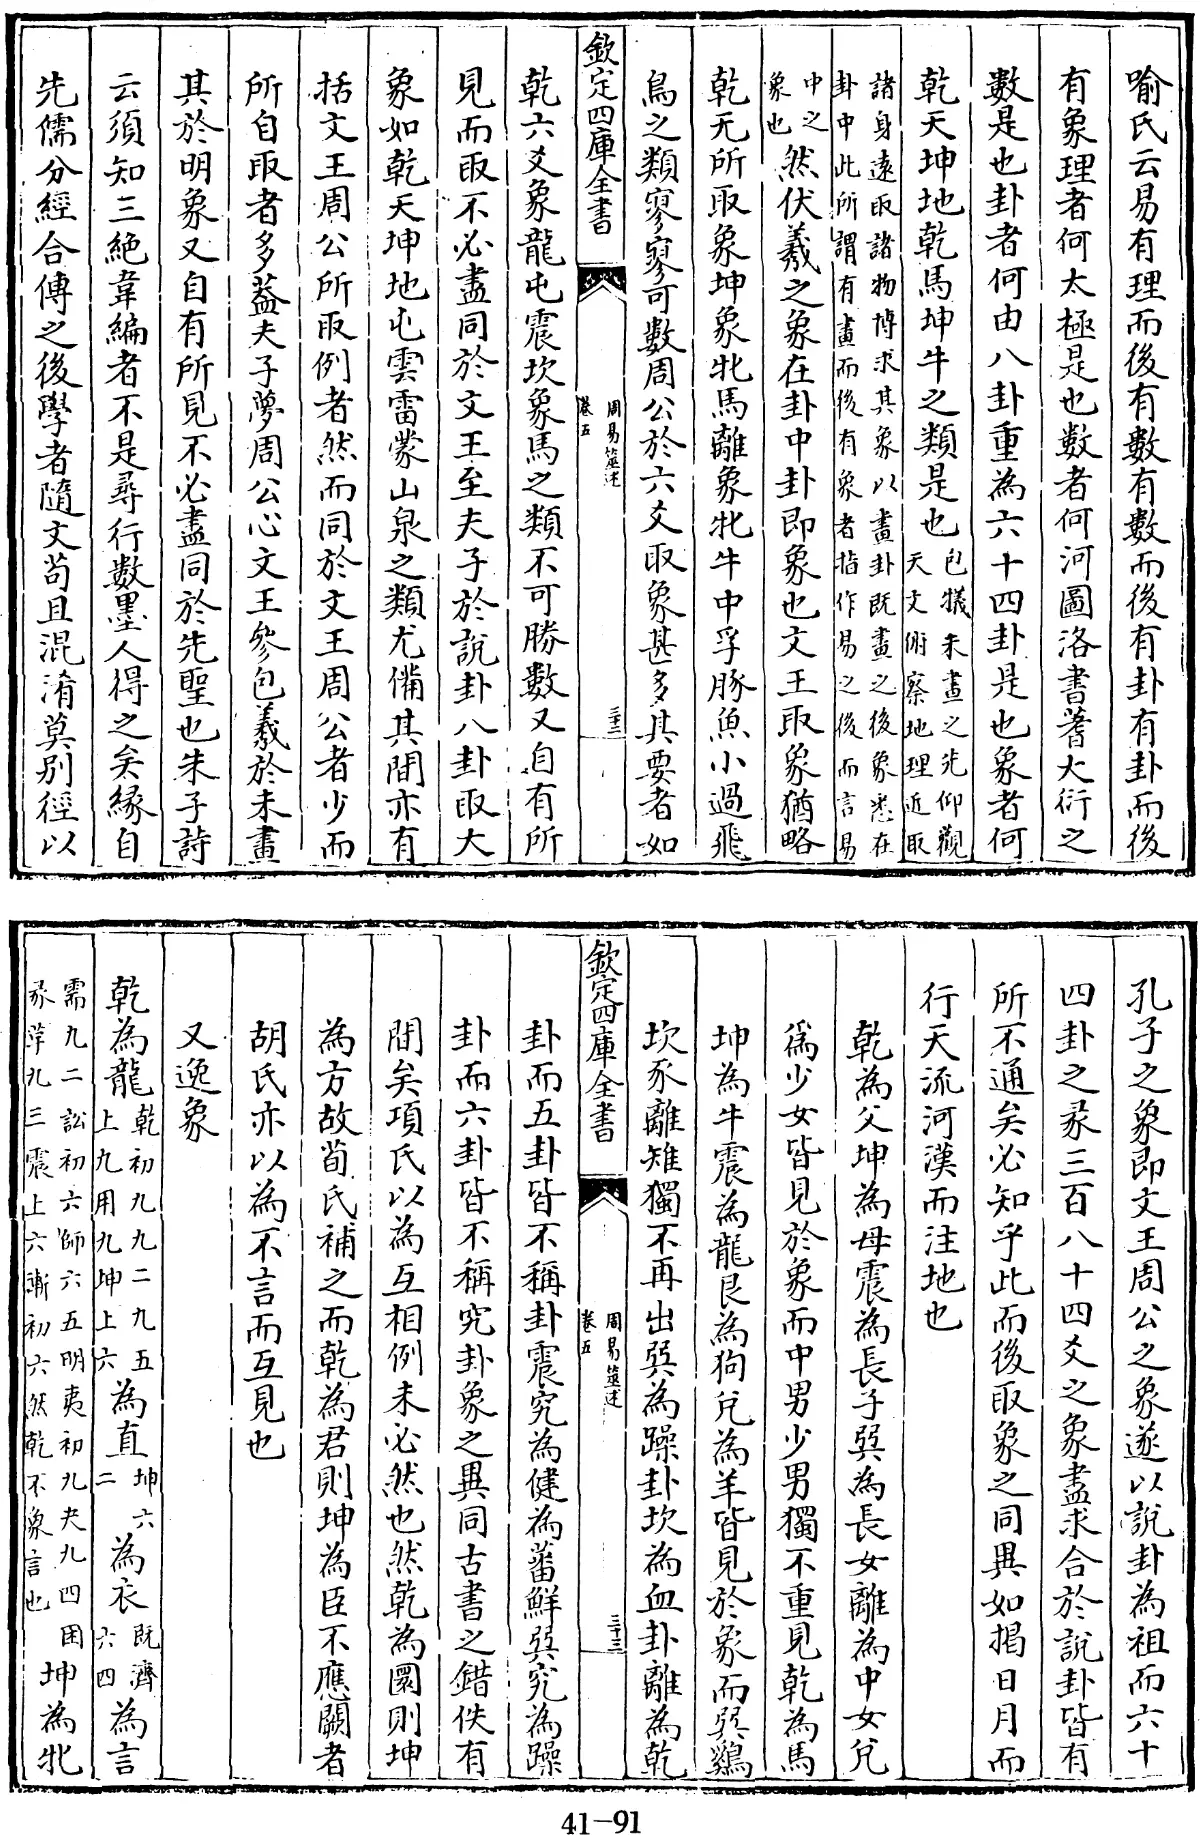 喻氏云易有理而後有數有數而後有卦有卦而後
有象理者何太極是也數者何河圖洛書蓍大衍之
數是也卦者何由八卦重為六十四卦是也象者何
乾天坤地乾馬坤牛之類是也包犧未畫之先仰觀天文俯察地理近取
諸身遠取諸物博求其象以畫卦既畫之後象悉在卦中此所謂有畫而後有象者指作易之後而言易
中之象也然伏羲之象在卦中卦即象也文王取象猶略
乾无所取象坤象牝馬離象牝牛中孚豚魚小過飛
鳥之類寥寥可數周公於六爻取象甚多其要者如
欽定四庫全書
周易筮述
卷五
三十二
乾六爻象龍屯震坎象馬之類不可勝數又自有所
見而取不必盡同於文王至夫子於說卦八卦取大
象如乾天坤地屯雲雷蒙山泉之類尤備其間亦有
括文王周公所取例者然而同於文王周公者少而
所自取者多葢夫子夢周公心文王參包羲於未畫
其於明象又自有所見不必盡同於先聖也朱子詩
云須知三絶韋編者不是尋行數墨人得之矣緣自
先儒分經合傳之後學者隨文苟且混淆莫別徑以
孔子之象即文王周公之象遂以說卦為祖而六十
四卦之彖三百八十四爻之象盡求合於說卦皆有
所不通矣必知乎此而後取象之同異如揭日月而
行天流河漢而注地也
乾為父坤為母震為長子巽為長女離為中女兌
爲少女皆見於象而中男少男獨不重見乾為馬
坤為牛震為龍艮為狗兌為羊皆見於象而巽鷄
坎豕離雉獨不再出巽為躁卦坎為血卦離為乾
欽定四庫全書
周易筮述
卷五
三十三
卦而五卦皆不稱卦震究為健為蕃鮮巽究為躁
卦而六卦皆不稱究卦象之異同古書之錯佚有
間矣項氏以為互相例未必然也然乾為圜則坤
為方故荀氏補之而乾為君則坤為臣不應闕者
胡氏亦以為不言而互見也
又逸象
乾為龍乾初九九二九五上九用九坤上六為直坤六二為衣既濟六四為言
需九二訟初六師六五明夷初九夬九四困彖萃九三震上六漸初六然乾不象言也坤為牝
41-91